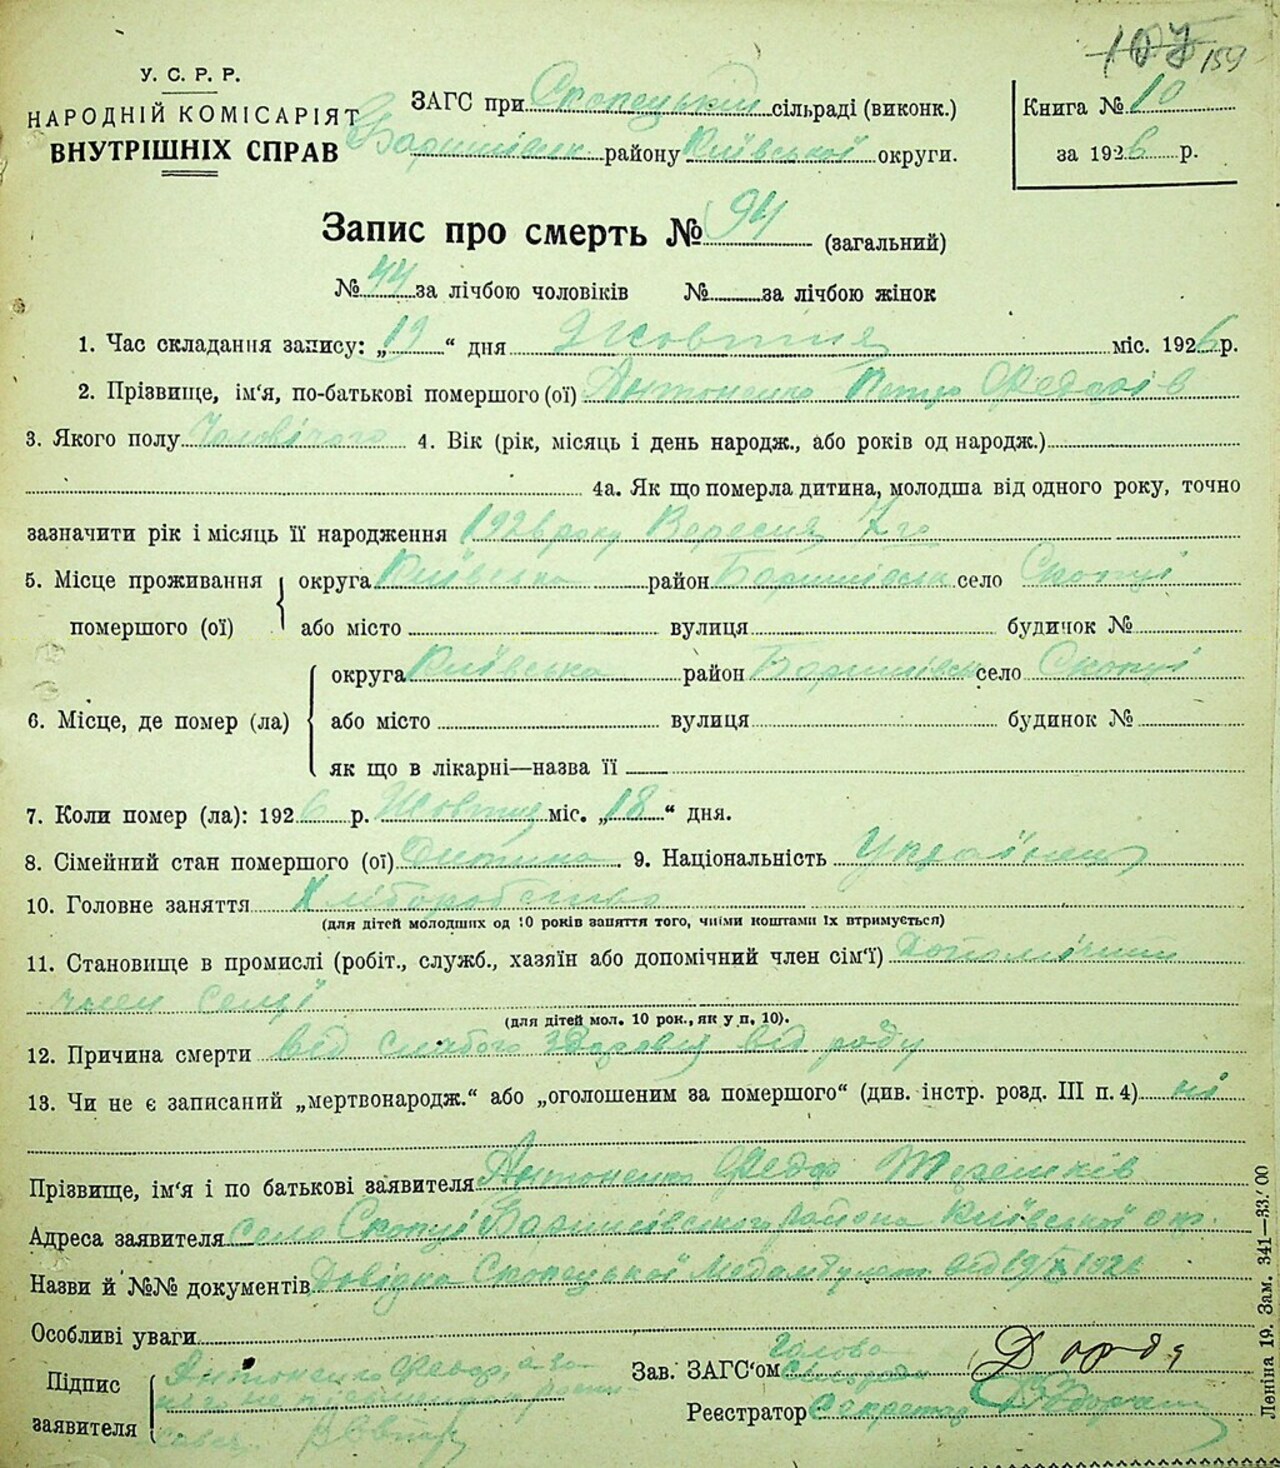 107 159
У. С. Р. Р.
НАРОДНІЙ КОМІСАРІЯТ
ВНУТРІШНІХ СПРАВ
ЗАГС при Скопецькій сільраді (виконк.)
Баришівськ району Київської округи.
Книга № 10
за 1926 р.
Запис про смерть № 94 (загальний)
№ 44 за лічбою чоловіків № за лічбою жінок
1. Час складання запису: „19“ дня Жовтня міс. 1926 р.
2. Прізвище, ім'я, по-батькові помершого (ої) Антоненко Петро Федорів
3. Якого полу Чоловічого 4. Вік (рік, місяць і день народж., або років од народж.)
4а. Як що померла дитина, молодша від одного року, точно
зазначити рік і місяць її народження 1926 року Вересня 7го
5. Місце проживання помершого (ої) округа Київська район Баришівськ село Скопці
або місто вулиця будинок №
6. Місце, де помер (ла) округа Київська район Баришівськ село Скопці
або місто вулиця будинок №
як що в лікарні—назва її
7. Коли помер (ла): 1926 р. Жовтня міс. „18“ дня.
8. Сімейний стан помершого (ої) Дитина 9. Національність Українець
10. Головне заняття Хліборобство
(для дітей молодших од 10 років заняття того, чиїми коштами їх втримується)
11. Становище в промислі (робіт., служб., хазяїн або допомічний член сім'ї) Допомічний
член семї
(для дітей мол. 10 рок., як у п. 10).
12. Причина смерти від слабого здоровя від роду
13. Чи не є записаний „мертвонародж.“ або „оголошеним за помершого“ (див. інстр. розд. III п. 4) ні
Прізвище, ім'я і по батькові заявителя Антоненко Федор Терешків
Адреса заявителя село Скопці Баришівського района Київської окр.
Назви й №№ документів Довідка Скопецької Медамбулат. від 19/X 1926
Особливі уваги
Підпис заявителя Антоненко Федор, а за
нього не
Зав. ЗАГС'ом Голова Сільради
Реєстратор Секретар
Леніна 19. Зам. 341—33/00